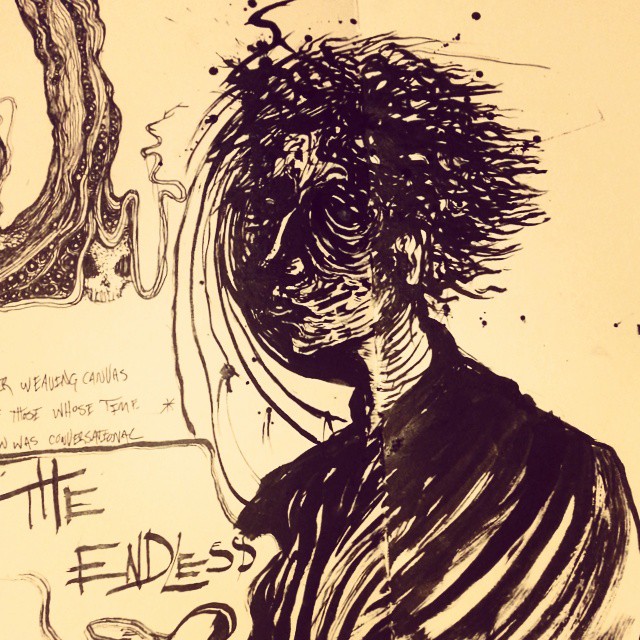 WEAVING CANVAS
THESE WHOSE TEMP. *
WAS CONVERSATIONAL
THE
ENDLESS